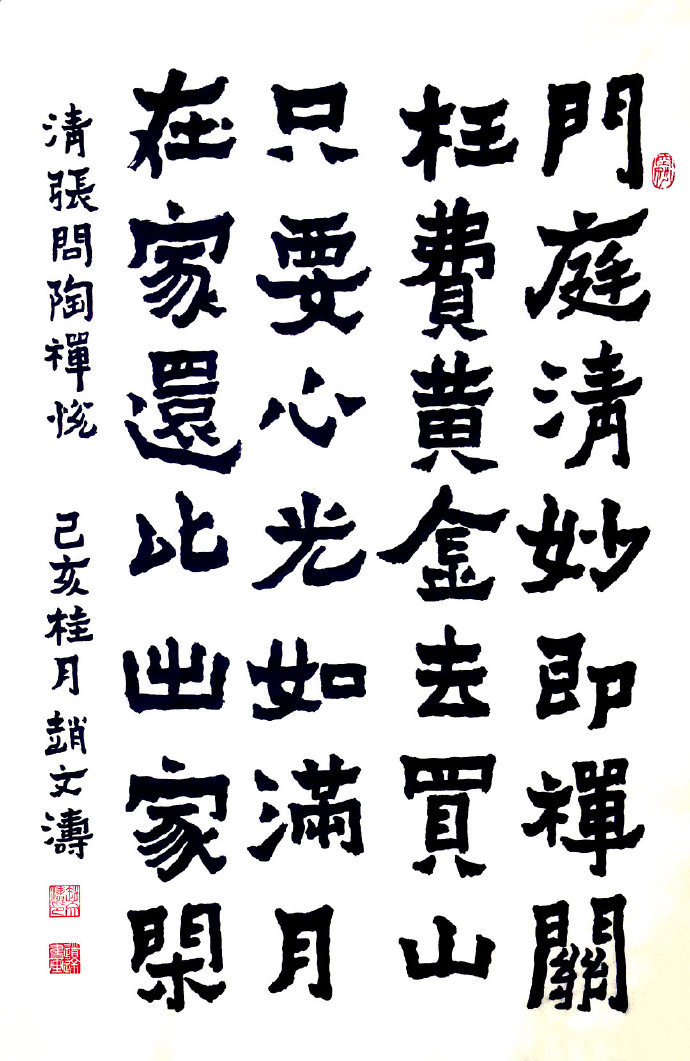 門庭清妙即禪關
枉費黄金去買山
只要心光如滿月
在家還比出家閑
清張問陶禪悅 己亥桂月趙文濤